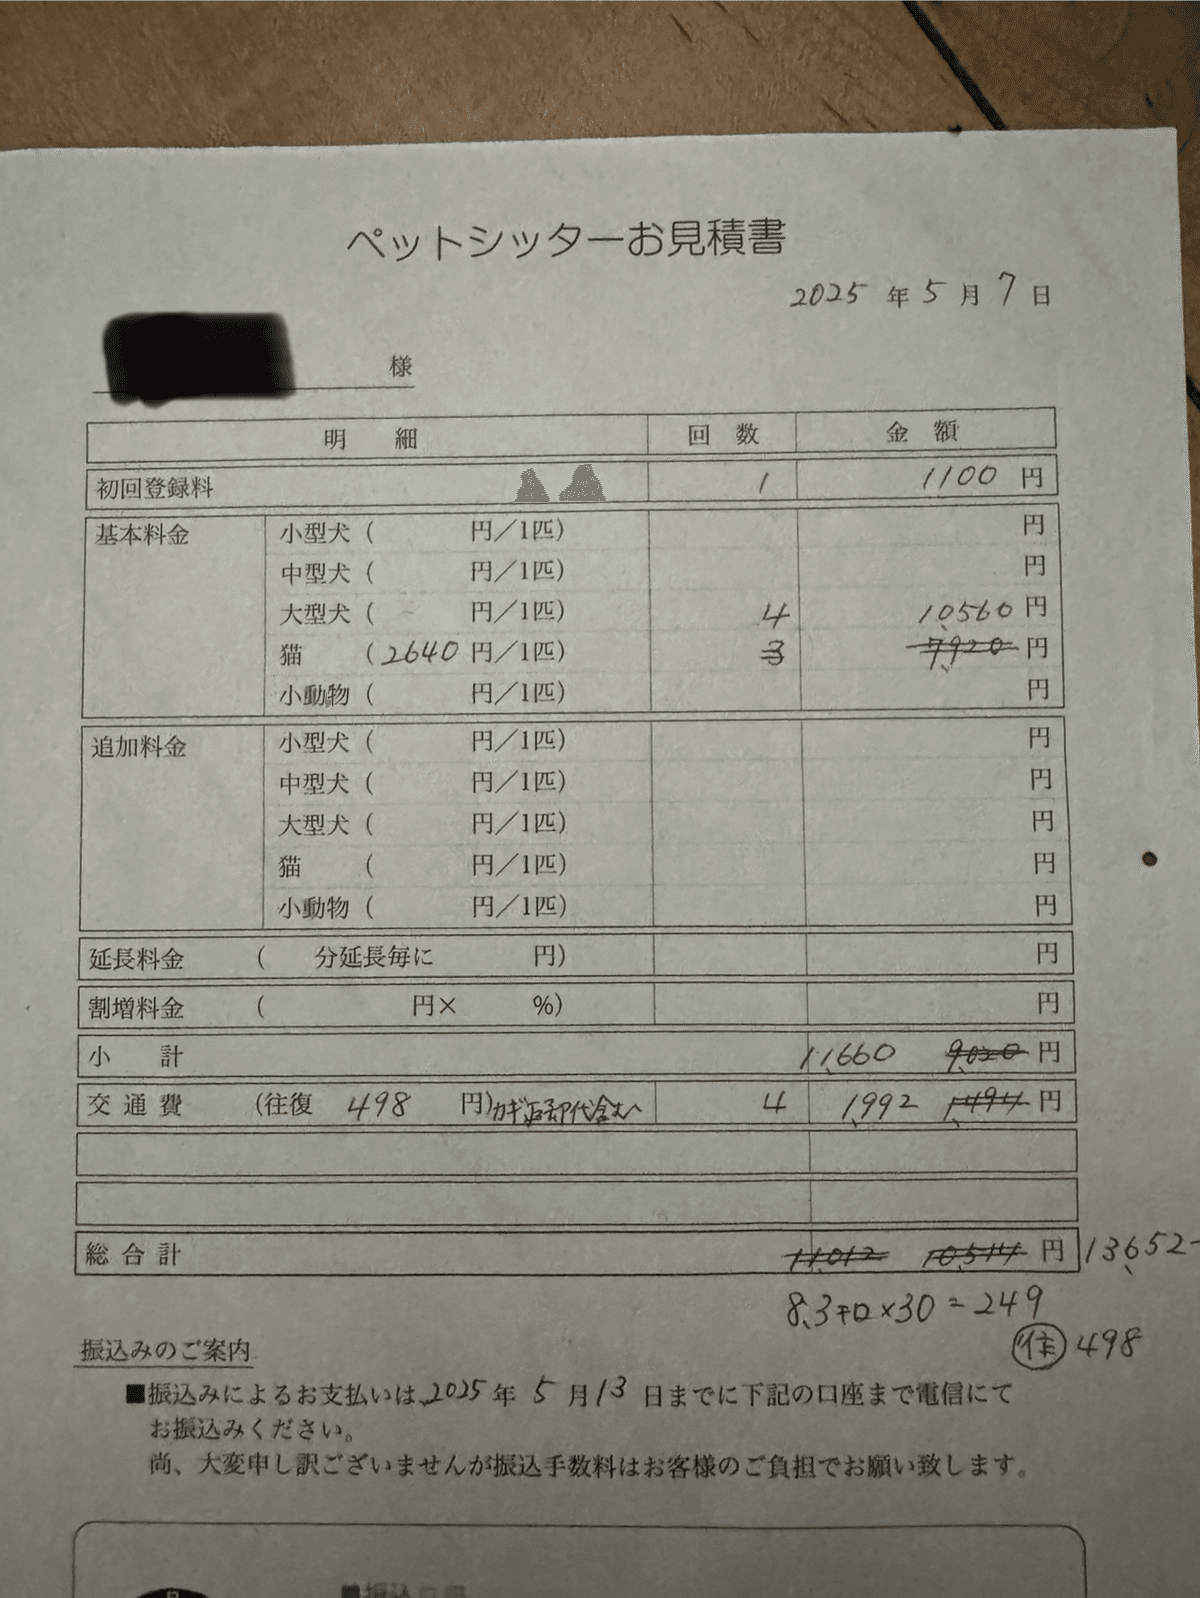 ペットシッターお見積書
2025 年 5 月 7 日
様
明 細 回 数 金 額
初回登録料 1 1100 円
基本料金 小型犬 ( 円／1匹) 円
中型犬 ( 円／1匹) 円
大型犬 ( 円／1匹) 4 10,560 円
猫 (2640 円／1匹) 3 7,920 円
小動物 ( 円／1匹) 円
追加料金 小型犬 ( 円／1匹) 円
中型犬 ( 円／1匹) 円
大型犬 ( 円／1匹) 円
猫 ( 円／1匹) 円
小動物 ( 円／1匹) 円
延長料金 ( 分延長毎に 円) 円
割増料金 ( 円× %) 円
小 計 11,660 9,020 円
交 通 費 (往復 498 円)カギ返却代含む 4 1,992 1,494 円
総 合 計 11,012 10,514 円 13,652-
8.3キロ×30=249
往 498
振込みのご案内
■振込みによるお支払いは、2025 年 5 月 13 日までに下記の口座まで電信にて
お振込みください。
尚、大変申し訳ございませんが振込手数料はお客様のご負担でお願い致します。